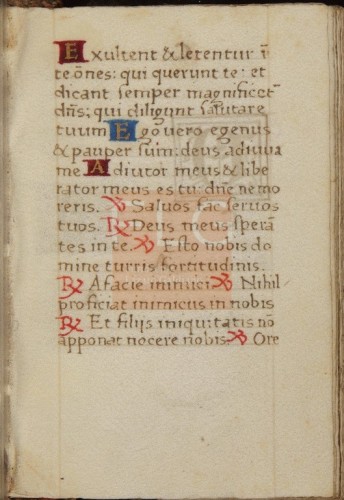 Exultent & letentur ī
te ōnes: qui querunt te: et
dicant semper magnificet᷑
dn̄s; qui diligunt salutare
tuum Ego vero egenus
& pauper sum: deus adiuva
me Adiutor meus & libe
rator meus es tu: dn̄e ne mo
reris. ℣ Salvos fac servos
tuos. ℟ Deus meus sperā
tes in te. ℣ Esto nobis do
mine turris fortitudinis.
℟ A facie inimici ℣ Nihil
proficiat inimicus in nobis
℟ Et filijs iniquitatis nō
apponat nocere nobis. ℣ Ore